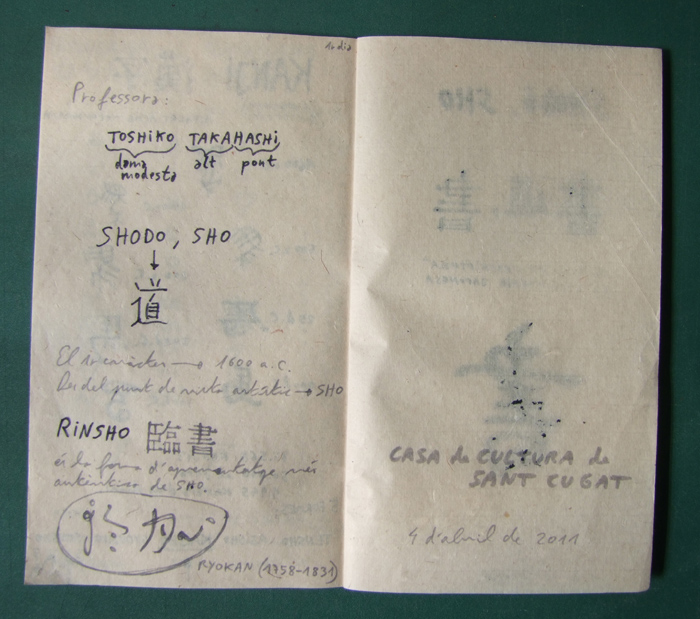 1r dia
Professora:
TOSHIKO TAKAHASHI
dama modesta alt pont
SHODO, SHO
道
El 1r caràcter → 1600 a.C.
Des del punt de vista artístic → SHO
RINSHO 臨書
és la forma d'aprenentatge més
autèntica de SHO.
RYOKAN (1758-1831)
CASA de CULTURA de
SANT CUGAT
4 d'abril de 2011